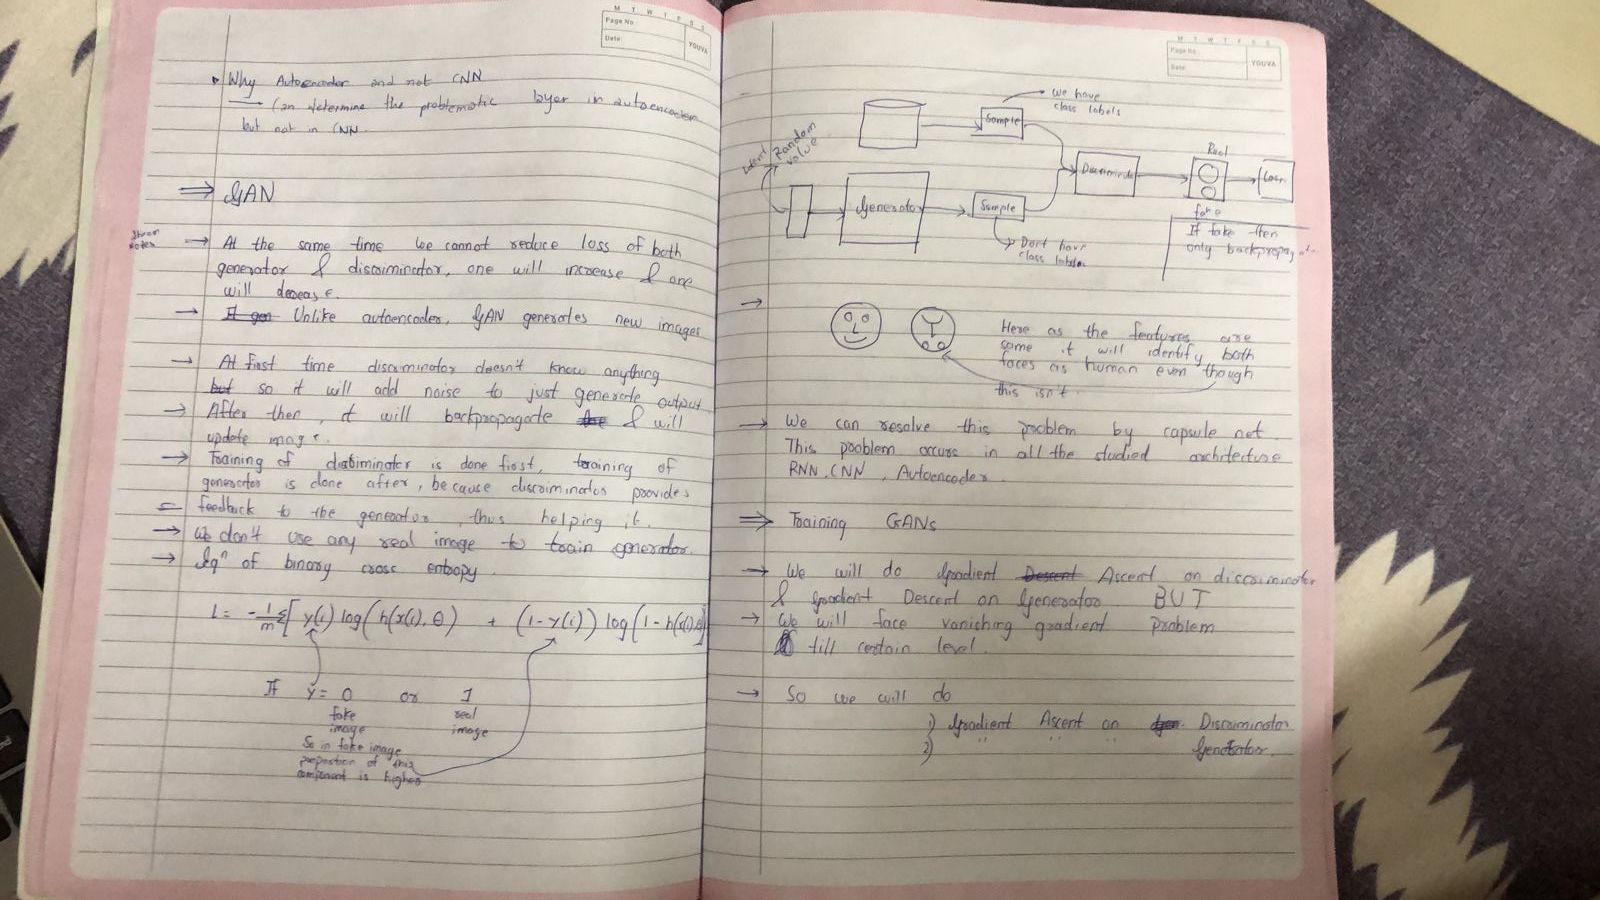 M T W T F S S
Page No.:
Date:
YOUVA
Why Autoencoder and not CNN
Can determine the problematic layer in autoencoder
but not in CNN.
GAN
notes
At the same time we cannot reduce loss of both
generator & discriminator, one will increase & one
will decrease.
If gen Unlike autoencoder, GAN generates new images
At first time discriminator doesn't know anything
but so it will add noise to just generate output
After then, it will backpropagate & will
update image.
Training of discriminator is done first, training of
generator is done after, because discriminator provides
feedback to the generator, thus helping it.
We don't use any real image to train generator.
Eqn of binary cross entropy.
L = -1/m Σ[ y(i) log(h(x(i), θ) + (1-y(i)) log(1-h(x(i),θ)]
If y = 0 or 1
fake real
image image
So in fake image
proportion of this
component is higher
M T W T F S S
Page No.:
Date:
YOUVA
we have
class labels
Sample
Random
value
Discriminator
Real
fake
Loss
Generator
Sample
Don't have
class labels
If fake then
only backpropagat.
Here as the features are
same it will identify both
faces as human even though
this isn't.
We can resolve this problem by capsule net.
This problem occurs in all the studied architecture
RNN, CNN, Autoencoder.
Training GANs
We will do Gradient Descent Ascent on discriminator
& Gradient Descent on Generator. BUT
We will face vanishing gradient problem
till certain level.
So we will do
1) Gradient Ascent on Discriminator
2) " " " Generator.